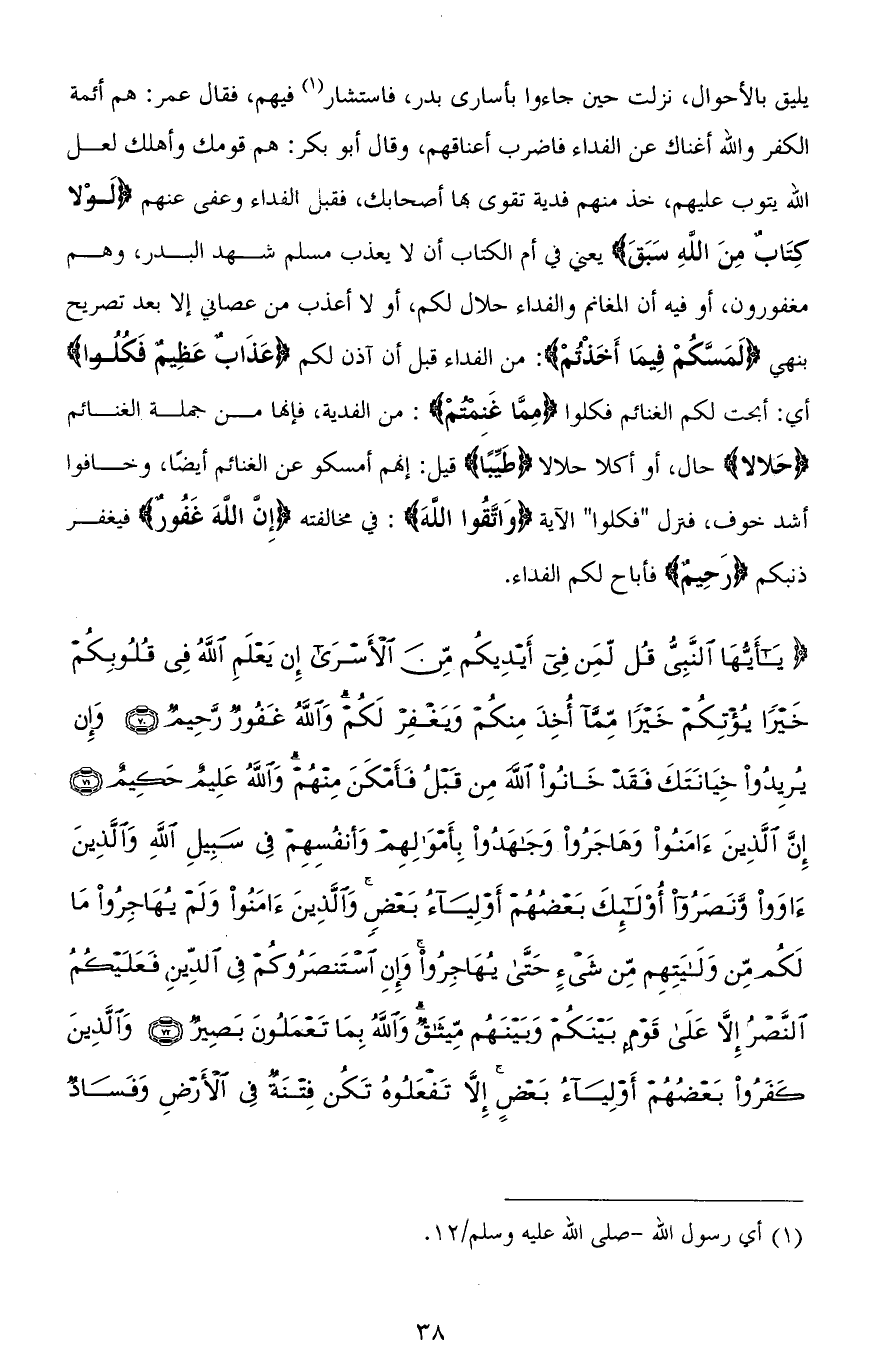 يليق بالأحوال، نزلت حين جاءوا بأسارى بدر، فاستشار(١) فيهم، فقال عمر: هم أئمة
الكفر والله أغناك عن الفداء فاضرب أعناقهم، وقال أبو بكر: هم قومك وأهلك لعل
الله يتوب عليهم، خذ منهم فدية تقوى بها أصحابك، فقبل الفداء وعفى عنهم ﴿لَوْلا
كِتَابٌ مِنَ اللَّهِ سَبَقَ﴾ يعني في أم الكتاب أن لا يعذب مسلم شهد البدر، وهم
مغفورون، أو فيه أن المغانم والفداء حلال لكم، أو لا أعذب من عصاني إلا بعد تصريح
بنهي ﴿لَمَسَّكُمْ فِيمَا أَخَذْتُمْ﴾: من الفداء قبل أن آذن لكم ﴿عَذَابٌ عَظِيمٌ فَكُلُوا﴾
أي: أبحت لكم الغنائم فكلوا ﴿مِمَّا غَنِمْتُمْ﴾ : من الفدية، فإنها من جملة الغنائم
﴿حَلالا﴾ حال، أو أكلا حلالا ﴿طَيِّبًا﴾ قيل: إنهم أمسكو عن الغنائم أيضًا، وخافوا
أشد خوف، فنزل "فكلوا" الآية ﴿وَاتَّقُوا اللَّهَ﴾ : في مخالفته ﴿إِنَّ اللَّهَ غَفُورٌ﴾ فيغفر
ذنبكم ﴿رَحِيمٌ﴾ فأباح لكم الفداء.
﴿ يَـٰٓأَيُّهَا ٱلنَّبِىُّ قُل لِّمَن فِىٓ أَيْدِيكُم مِّنَ ٱلْأَسْرَىٰٓ إِن يَعْلَمِ ٱللَّهُ فِى قُلُوبِكُمْ
خَيْرًا يُؤْتِكُمْ خَيْرًا مِّمَّآ أُخِذَ مِنكُمْ وَيَغْفِرْ لَكُمْ ۗ وَٱللَّهُ غَفُورٌ رَّحِيمٌ ٧٠ وَإِن
يُرِيدُوا۟ خِيَانَتَكَ فَقَدْ خَانُوا۟ ٱللَّهَ مِن قَبْلُ فَأَمْكَنَ مِنْهُمْ ۗ وَٱللَّهُ عَلِيمٌ حَكِيمٌ ٧١
إِنَّ ٱلَّذِينَ ءَامَنُوا۟ وَهَاجَرُوا۟ وَجَـٰهَدُوا۟ بِأَمْوَٰلِهِمْ وَأَنفُسِهِمْ فِى سَبِيلِ ٱللَّهِ وَٱلَّذِينَ
ءَاوَوا۟ وَّنَصَرُوٓا۟ أُو۟لَـٰٓئِكَ بَعْضُهُمْ أَوْلِيَآءُ بَعْضٍ ۚ وَٱلَّذِينَ ءَامَنُوا۟ وَلَمْ يُهَاجِرُوا۟ مَا
لَكُم مِّن وَلَـٰيَتِهِم مِّن شَىْءٍ حَتَّىٰ يُهَاجِرُوا۟ ۚ وَإِنِ ٱسْتَنصَرُوكُمْ فِى ٱلدِّينِ فَعَلَيْكُمُ
ٱلنَّصْرُ إِلَّا عَلَىٰ قَوْمٍۭ بَيْنَكُمْ وَبَيْنَهُم مِّيثَـٰقٌ ۗ وَٱللَّهُ بِمَا تَعْمَلُونَ بَصِيرٌ ٧٢ وَٱلَّذِينَ
كَفَرُوا۟ بَعْضُهُمْ أَوْلِيَآءُ بَعْضٍ ۚ إِلَّا تَفْعَلُوهُ تَكُن فِتْنَةٌ فِى ٱلْأَرْضِ وَفَسَادٌ
(١) أي رسول الله -صلى الله عليه وسلم/١٢.
٣٨